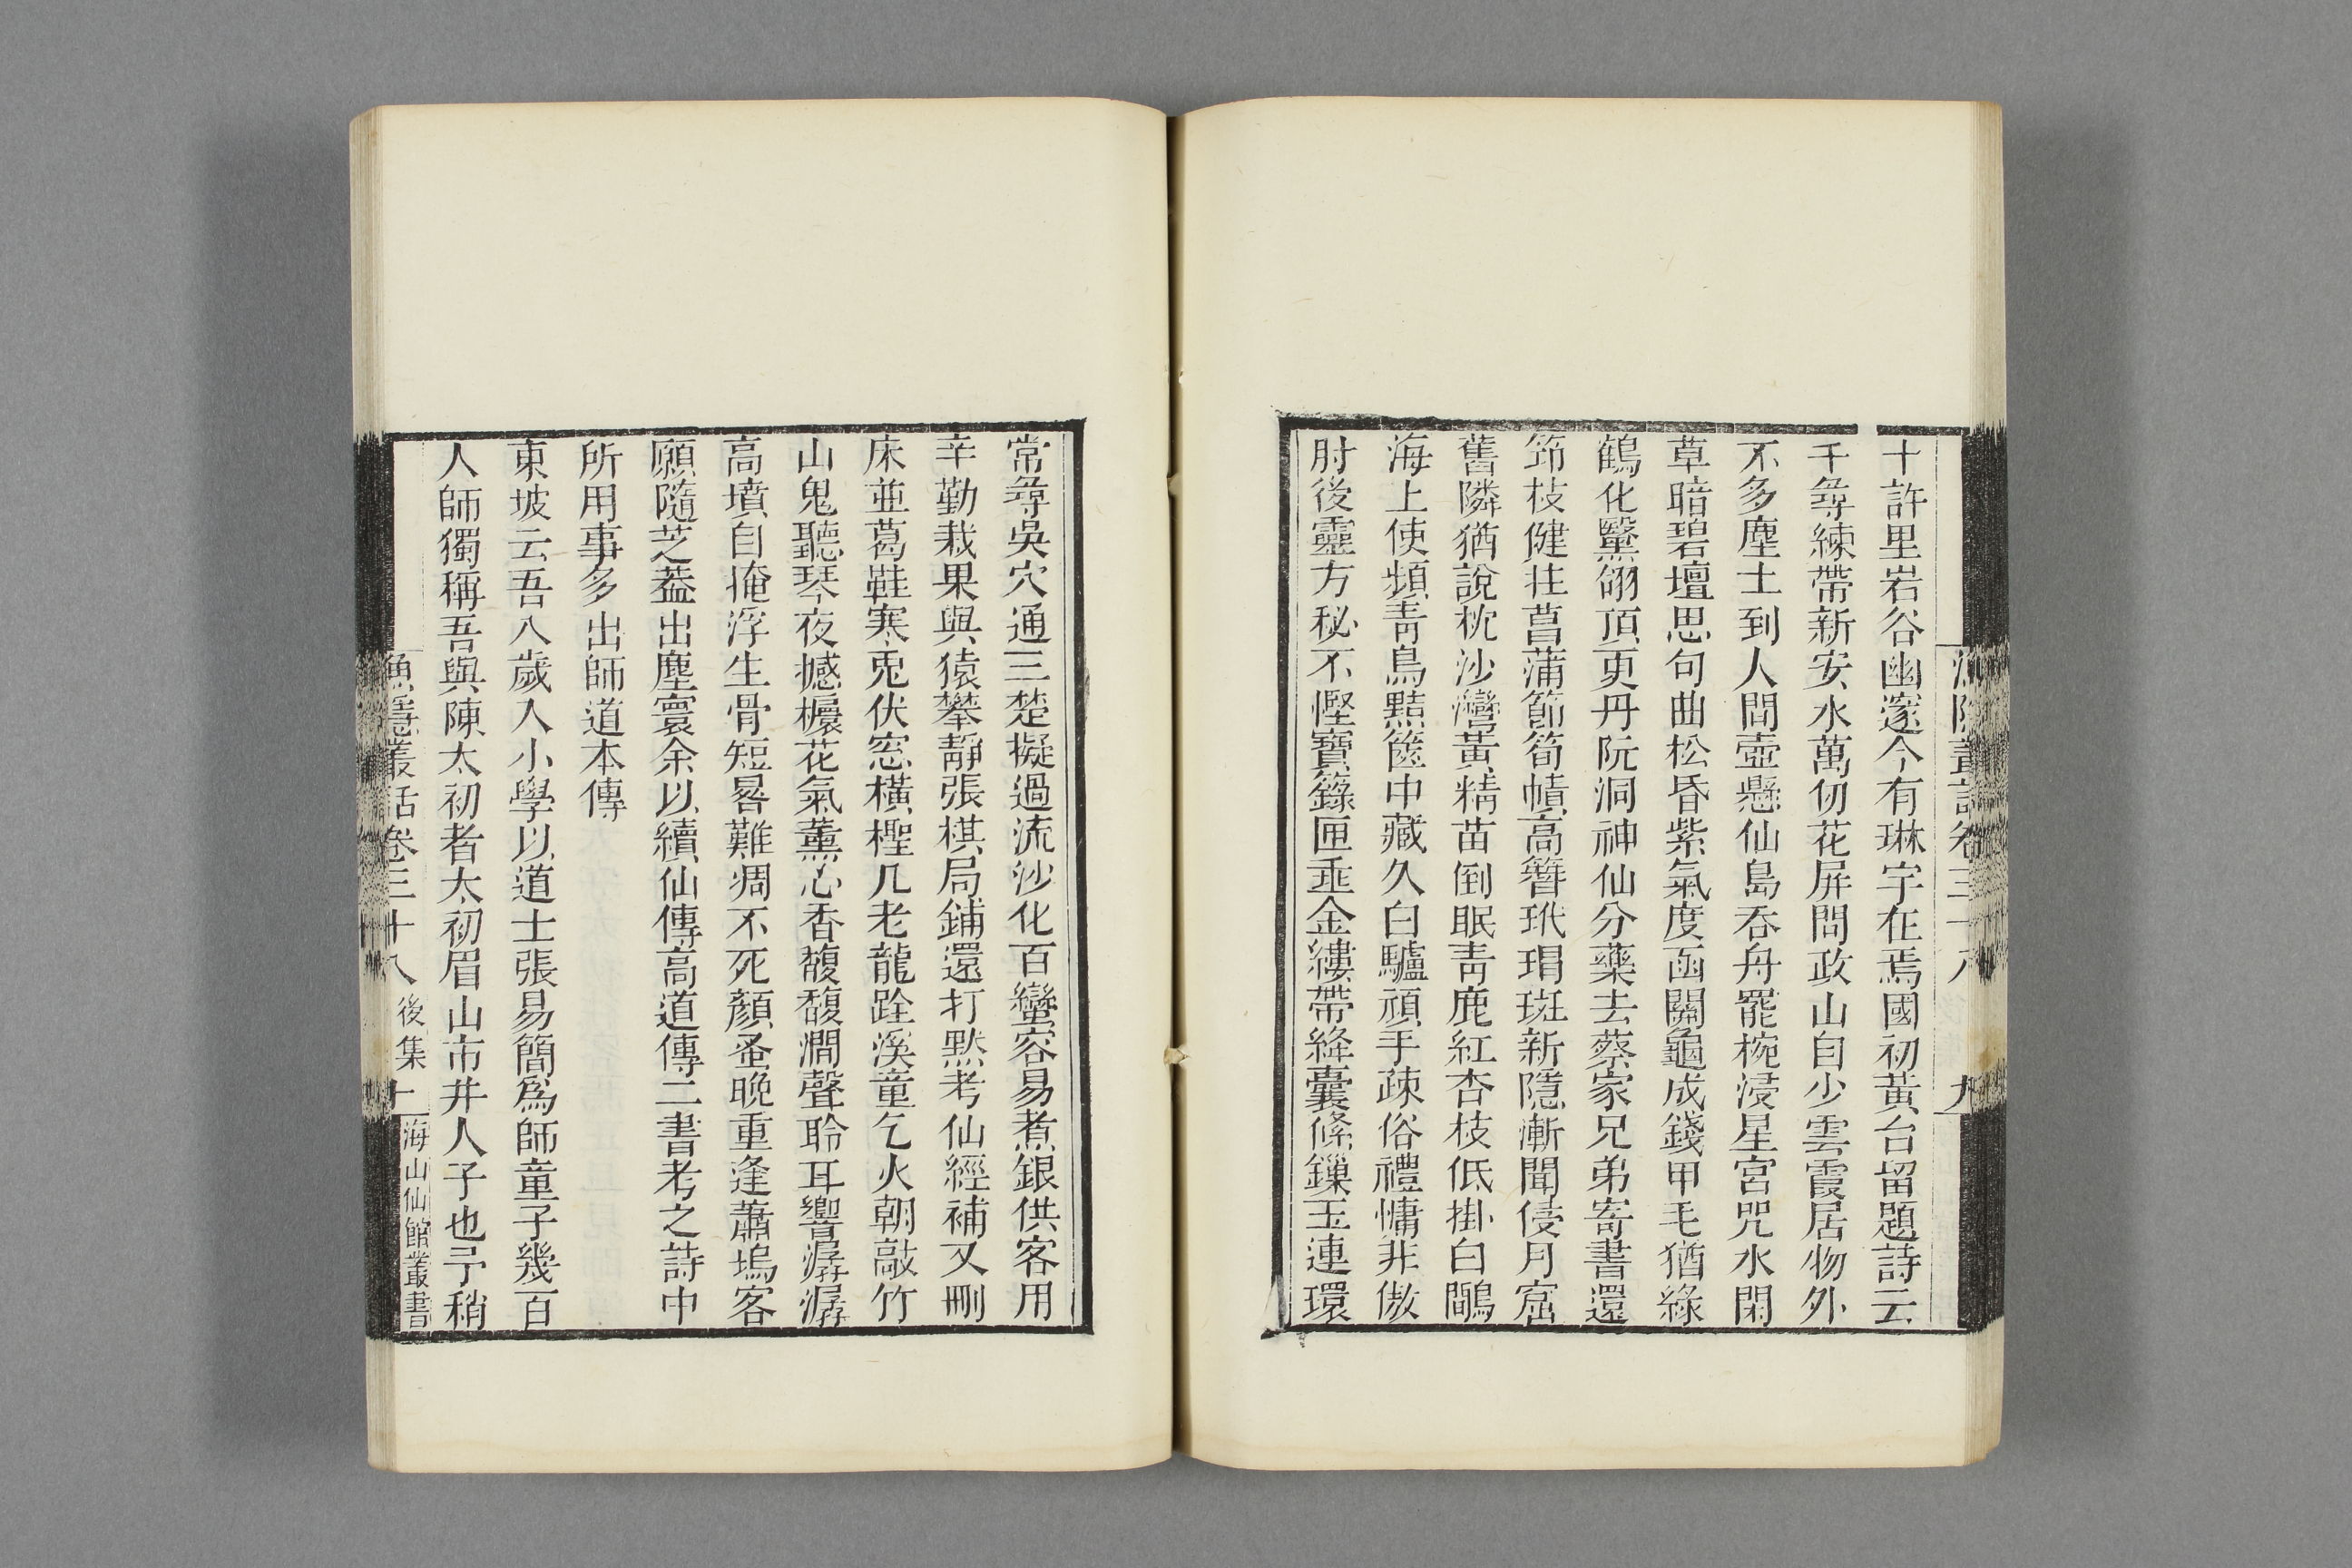 十許里岩谷幽邃今有琳宇在焉國初黃台留題詩云
千尋練帶新安水萬仞花屏問政山自少雲霞居物外
不多塵土到人間壺懸仙島吞舟罷椀浸星宮咒水閑
草暗碧壇思句曲松昏紫氣度函關龜成錢甲毛猶綠
鶴化黳翎頂更丹阮洞神仙分藥去蔡家兄弟寄書還
筇枝健拄菖蒲節筍幘高簪玳瑁斑新隱漸聞侵月窟
舊隣猶說枕沙灣黃精苗倒眠青鹿紅杏枝低掛白鷴
海上使頻青鳥黠篋中藏久白驢頑手疎俗禮慵非傲
肘後靈方秘不慳寶籙匣垂金縷帶絳囊絛鏁玉連環
常尋吳穴通三楚擬過流沙化百蠻容易煮銀供客用
辛勤栽果與猿攀靜張棋局鋪還打默考仙經補又刪
床並葛鞋寒兎伏窓橫檉几老龍跧溪童乞火朝敲竹
山鬼聽琴夜撼櫰花氣薰心香馥馥澗聲聆耳響潺潺
高墳自掩浮生骨短晷難凋不死顏蚤晚重逢蕭塢客
願隨芝蓋出塵寰余以續仙傳高道傳二書考之詩中
所用事多出師道本傳
東坡云吾八歲入小學以道士張易簡爲師童子幾百
人師獨稱吾與陳太初者太初眉山市井人子也予稍
漁隱叢話卷三十八 後集 十 海山仙館叢書